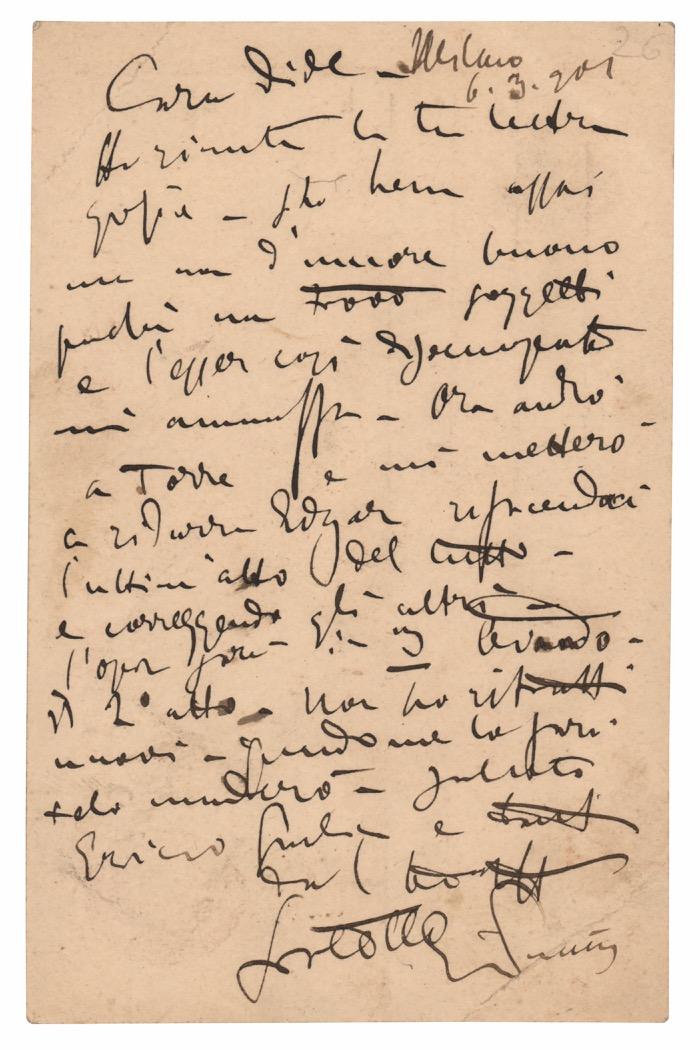 26
Cara Dide - Milano
6.3.901
Ho ricevuto la tua lettera
- sto bene assai
ma non d'umore buono
perchè non trovo soggetti
e l'esser così disoccupato
mi ammuffa - Ora andrò
a Torre e mi metterò
a ridurre Edgar rifacendoci
l'ultim'atto del tutto -
e correggendo gli altri -
l'opera sarà in 3 levando -
il 2º atto - Non ho ritratti
nuovi - quando me la farò
te lo manderò - Salutate
e tutti
dal